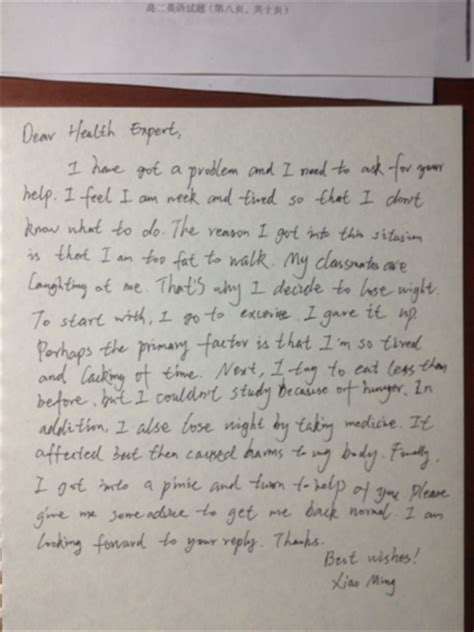 高二英语试题（第八页，共十页）
Dear Health Expert,
I have got a problem and I need to ask for your
help. I feel I am week and tired so that I don't
know what to do. The reason I got into this situsion
is that I am too fat to walk. My classmates are
laughting at me. That's why I decide to lose wight.
To start with, I go to excerise. I gave it up.
Perhaps the primary factor is that I'm so tired
and lacking of time. Next, I try to eat less than
before, but I couldn't study because of hunger. In
addition, I alse lose wight by taking medicine. It
affected but then caused harms to my body. Finally,
I got into a pinic and turn to help of you. Please
give me some advice to get me back normal. I am
looking forward to your reply. Thanks.
Best wishes!
Xiao Ming